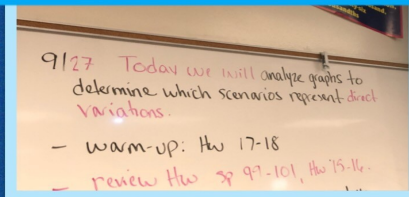 9/27 Today we will analyze graphs to
determine which scenarios represent direct
variations.
- warm-up: Hw 17-18
- review Hw sp 99-101, Hw 15-16.